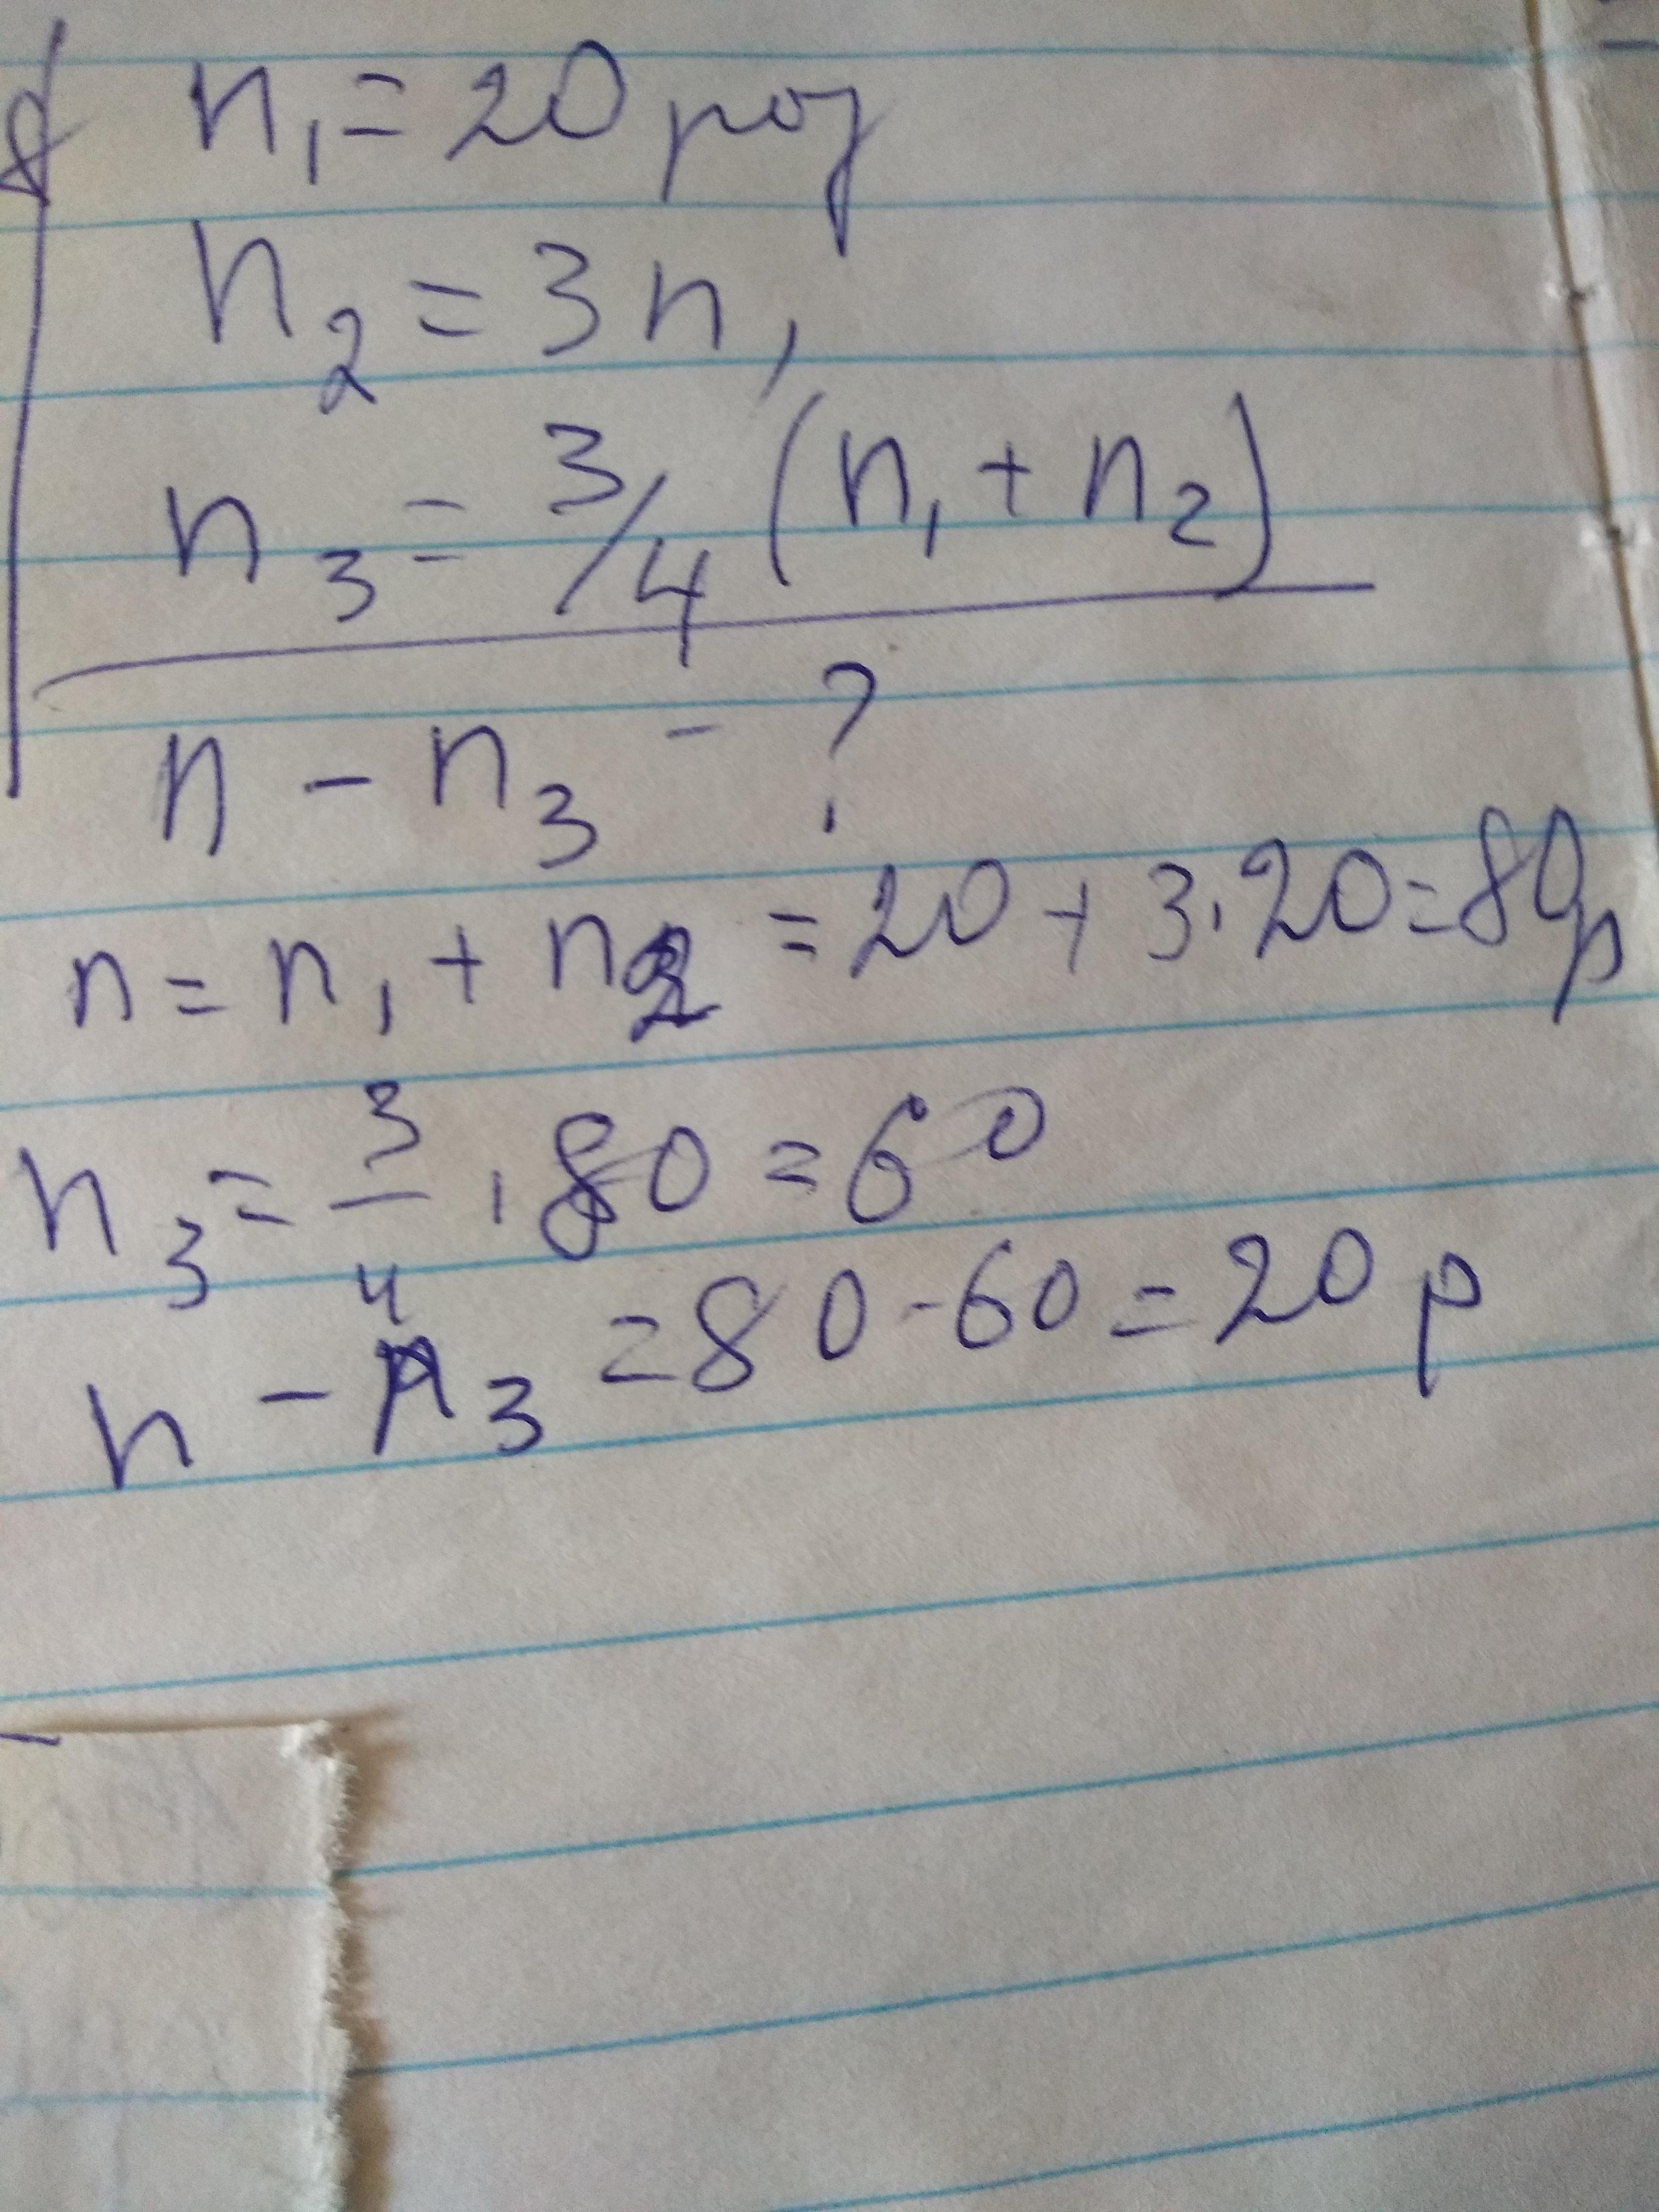 n₁ = 20 роз
n₂ = 3n₁
n₃ = 3/4 (n₁ + n₂)
n - n₃ - ?
n = n₁ + n₂ = 20 + 3·20 = 80р
n₃ = 3/4 · 80 = 60
n - n₃ = 80 - 60 = 20 р